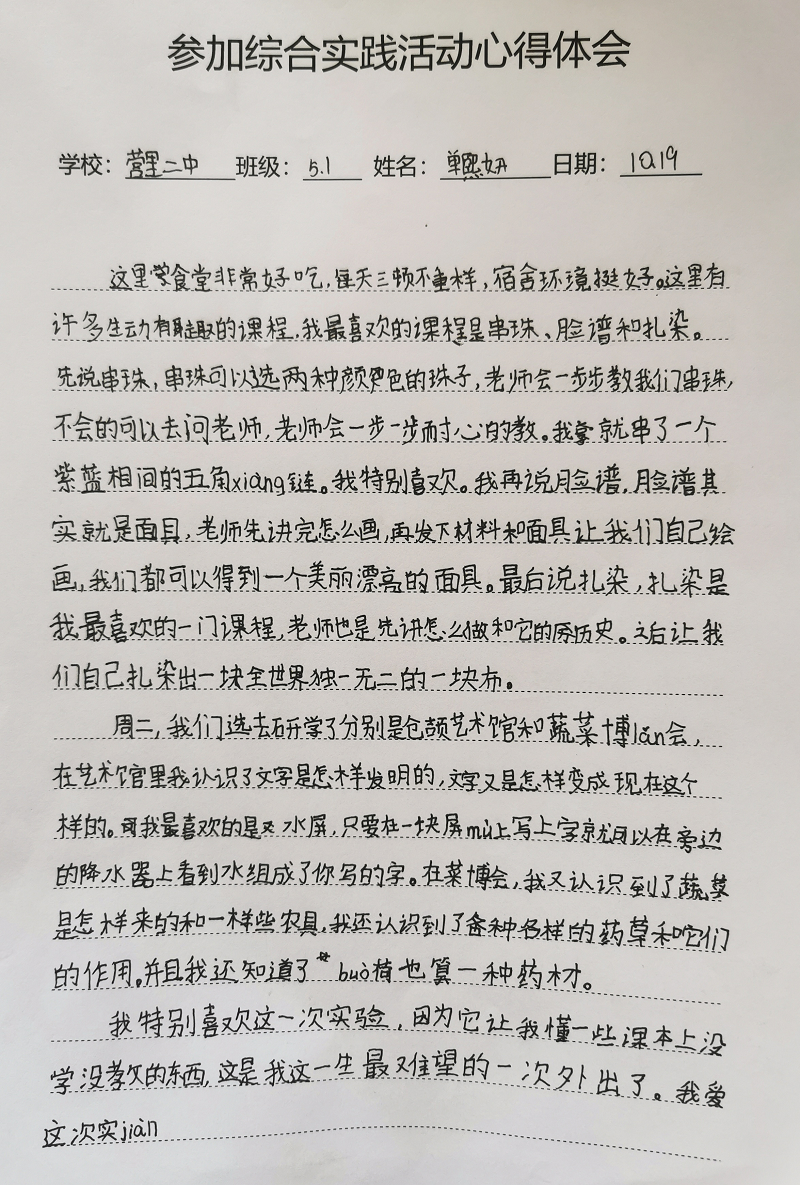 参加综合实践活动心得体会
学校：营里二中 班级：5.1 姓名：单熙妍 日期：10.19
这里食堂非常好吃，每天三顿不重样，宿舍环境挺好。这里有
许多生动有趣的课程，我最喜欢的课程是串珠、脸谱和扎染。
先说串珠，串珠可以选两种颜色的珠子，老师会一步步教我们串珠，
不会的可以去问老师，老师会一步一步耐心的教。我就串了一个
紫蓝相间的五角xiàng链。我特别喜欢。我再说脸谱，脸谱其
实就是面具，老师先讲完怎么画，再发下材料和面具让我们自己绘
画，我们都可以得到一个美丽漂亮的面具。最后说扎染，扎染是
我最喜欢的一门课程，老师也是先讲怎么做和它的历史。之后让我
们自己扎染出一块全世界独一无二的一块布。
周二，我们选去研学了分别是仓颉艺术馆和蔬菜博lǎn会，
在艺术馆里我认识了文字是怎样发明的，文字又是怎样变成现在这个
样的。我最喜欢的是水屏，只要在一块屏mù上写上字就可以在旁边
的降水器上看到水组成了你写的字。在菜博会，我又认识到了蔬菜
是怎样来的和一样些农具，我还认识到了各种各样的药草和它们
的作用。并且我还知道了buò荷也算一种药材。
我特别喜欢这一次实验，因为它让我懂一些课本上没
学没教的东西，这是我这一生最又难望的一次外出了。我爱
这次实jiàn